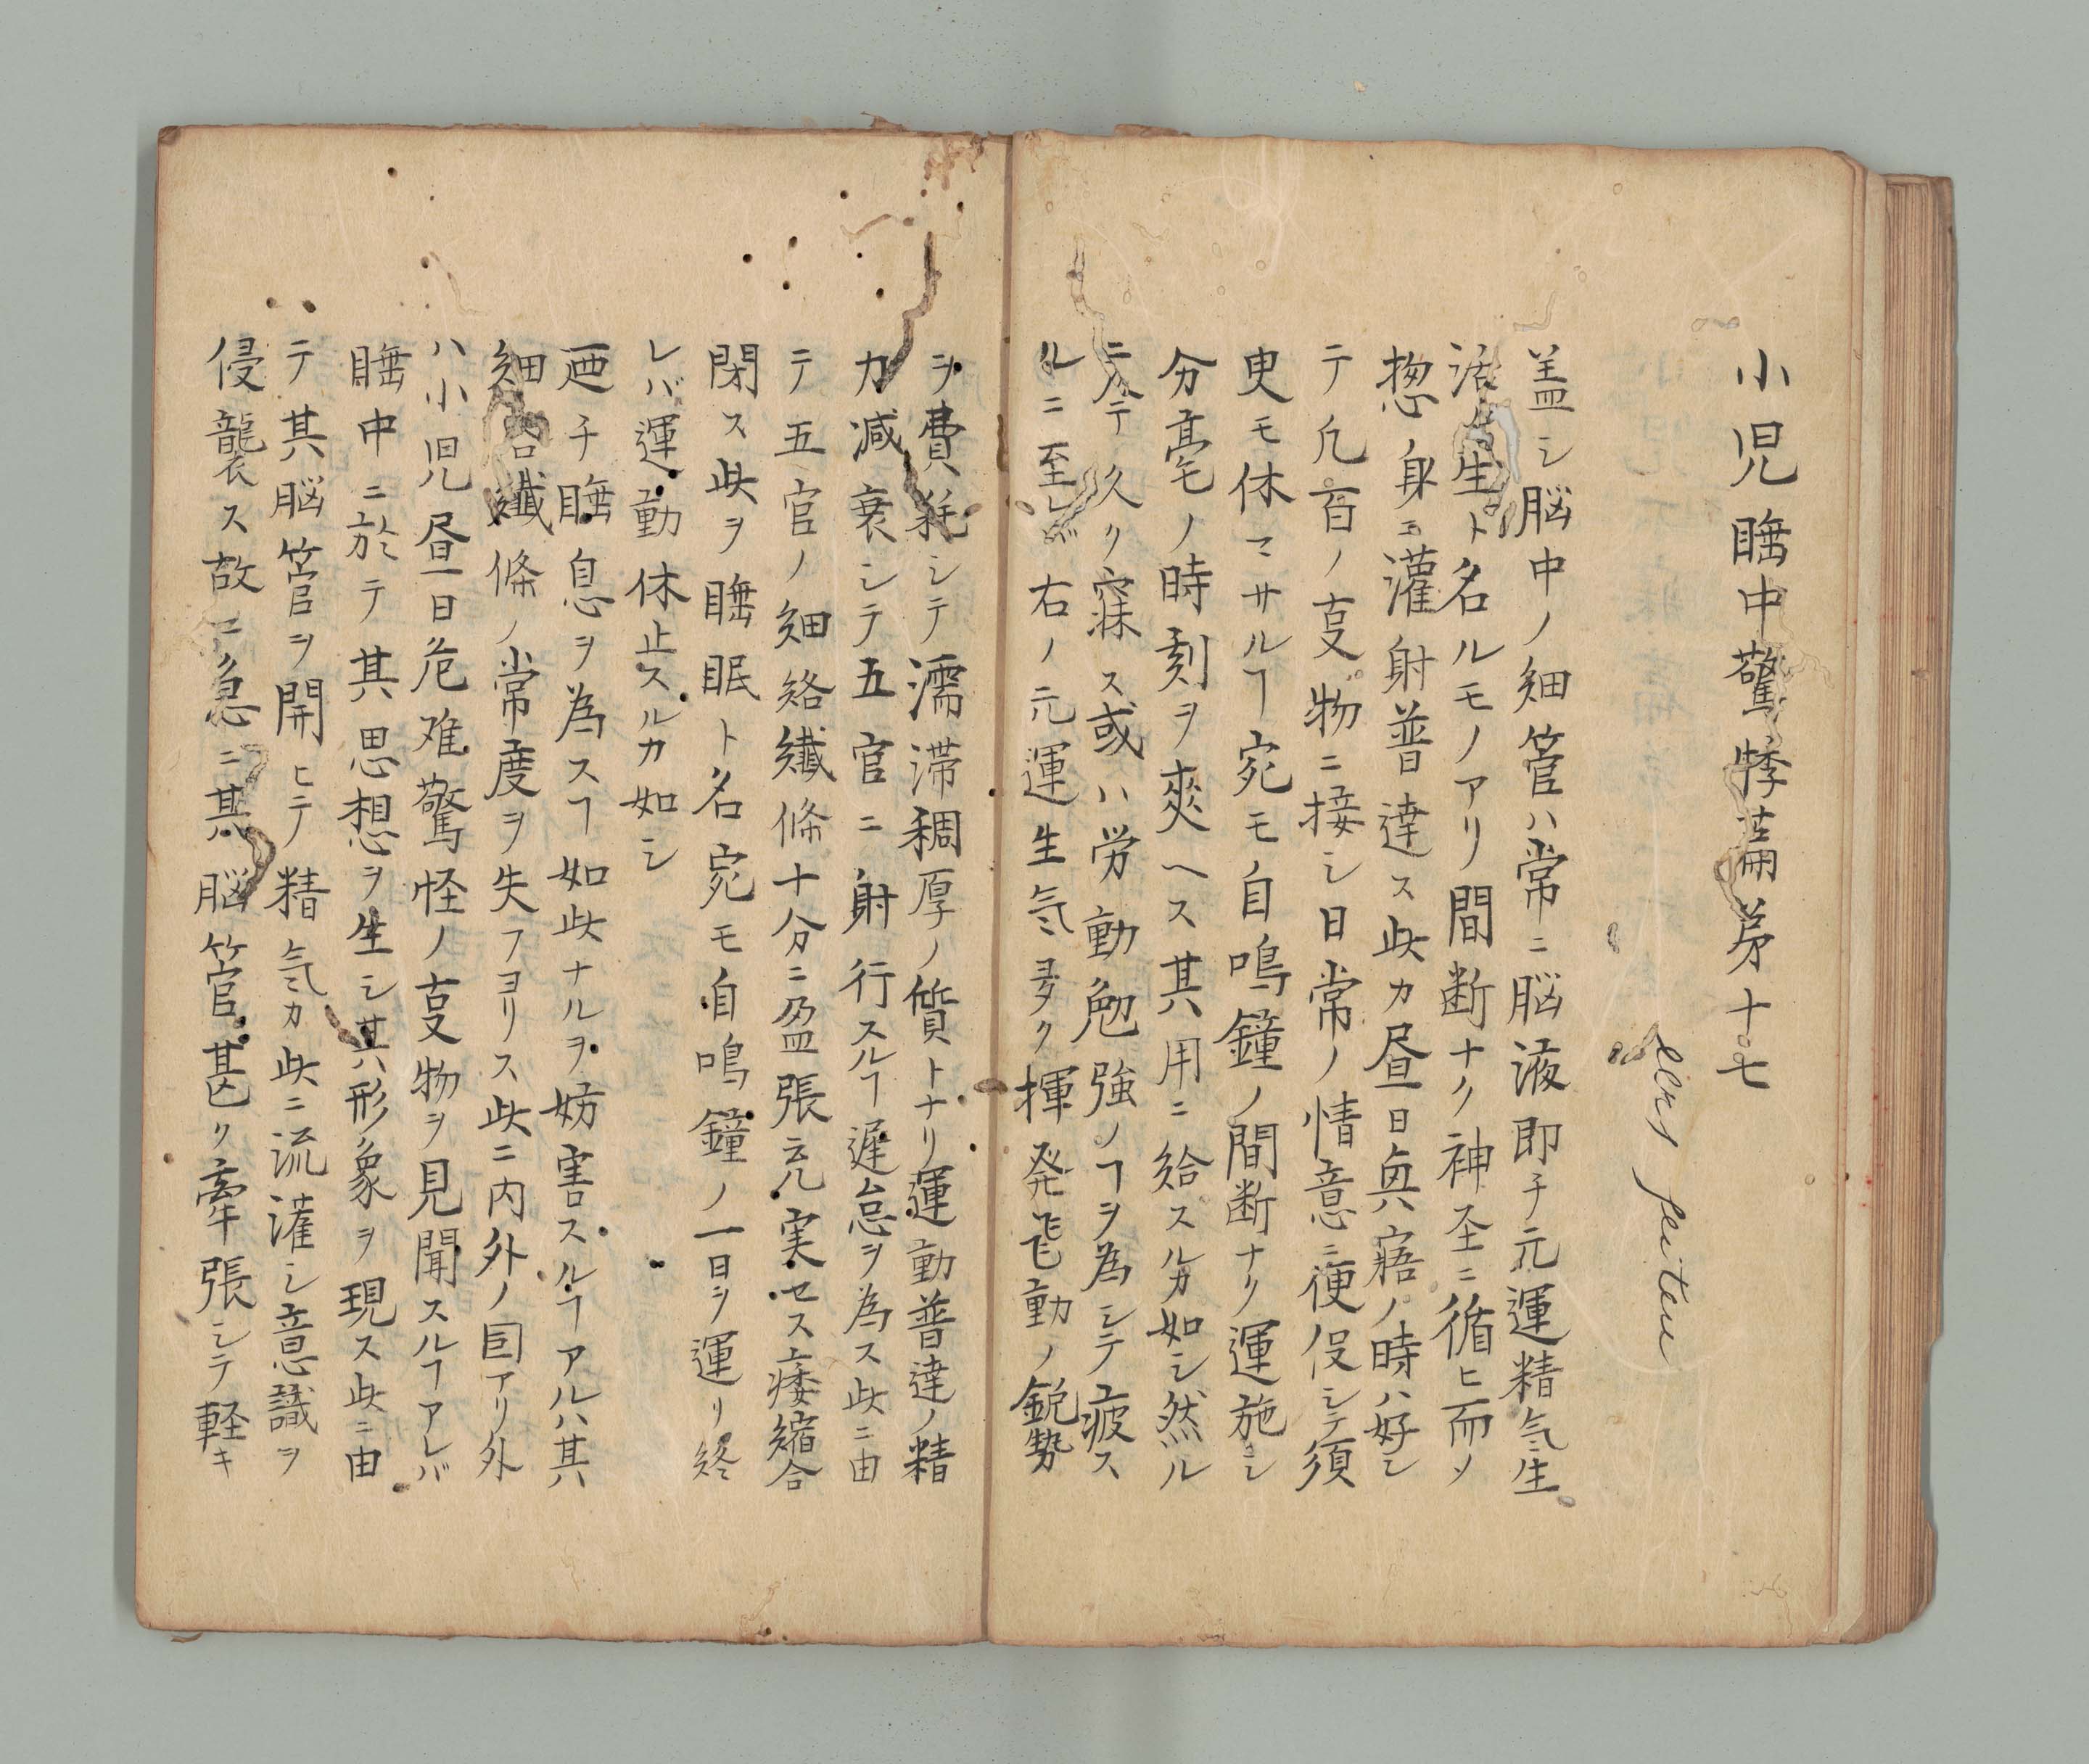 小児睡中驚悸篇第十七
盖シ脳中ノ細管ハ常ニ脳液即チ元運精気生
活ノ生ト名ルモノアリ間断ナク神圣ニ循ヒ而ソ
揔身ヱ灌射普達ス此カ昼日與寤ノ時ハ好シ
テ凢百ノ㕝物ニ接シ日常ノ情意ニ便役シテ須
曳モ休マサルヿ宛モ自鳴鐘ノ間断ナク運施シ
分毫ノ時刻ヲ爽ヘス其用ニ給スルカ如シ然ル
ニ人テ久ク寐ス或ハ労動勉強ノヿヲ為シテ疲ス
ルニ至レバ右ノ元運生気ヨク揮発飛動ノ鋭勢
ヲ費耗シテ濡滞稠厚ノ質トナリ運動普達ノ精
力減衰シテ五官ニ射行スルヿ遅怠ヲ為ス此ニ由
テ五官ノ細絡繊條十分ニ盈張充実セス痿縮合
閉ス此ヲ睡眠ト名宛モ自鳴鐘ノ一日ヲ運リ終
レバ運動休止スルカ如シ
廼チ睡息ヲ為スヿ如此ナルヲ妨害スルヿアルハ其
細絡繊條ノ常度ヲ失フヨリス此ニ内外ノ因アリ外
ハ小児昼日危难驚怪ノ㕝物ヲ見聞スルヿアレバ
睡中ニ於テ其思想ヲ生シ其形象ヲ現ス此ニ由
テ其脳管ヲ開ヒテ精気カ此ニ流灌シ意識ヲ
侵襲ス故ニ急ニ其脳管甚ク牽張シテ軽キ